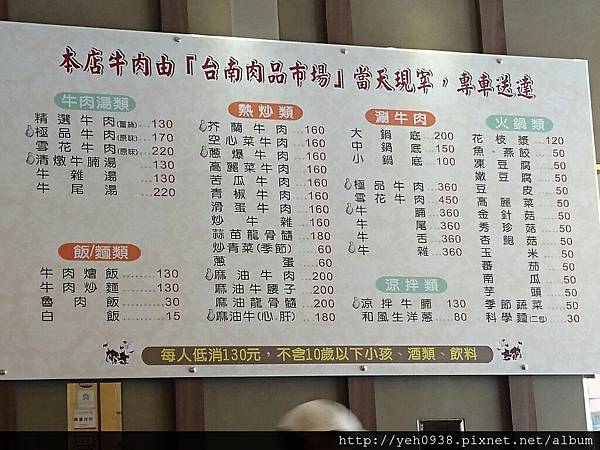 本店牛肉由『台南肉品市場』當天現宰，專車送達
牛肉湯類
精選牛肉(薑絲)....130
極品牛肉(原味)....170
雪花牛肉(原味)....220
清燉牛腩湯......130
牛雜湯......130
牛尾湯......220
飯/麵類
牛肉燴飯........130
牛肉炒麵........130
魯肉飯........30
白飯........15
熱炒類
芥蘭牛肉....160
空心菜牛肉....160
蔥爆牛肉....160
高麗菜牛肉....160
苦瓜牛肉....160
青椒牛肉....160
滑蛋牛肉....160
炒牛雜....160
蒜苗龍骨髓....180
炒青菜(季節)....60
蔥蛋....60
麻油牛肉....200
麻油牛腰子....200
麻油龍骨髓....200
麻油牛(心.肝)....180
涮牛肉
大鍋底....200
中鍋底....150
小鍋底....100
極品牛肉....360
雪花牛肉....450
牛腩....360
牛尾....360
牛舌....360
牛雜....360
涼拌類
涼拌牛腩 130
和風生洋蔥....80
火鍋類
花枝漿....120
魚.燕餃....50
凍豆腐....50
嫩豆腐....50
豆皮....50
高麗菜....50
金針菇....50
秀珍菇....50
杏鮑菇....50
玉米....50
蕃茄....50
南瓜....50
芋頭....50
季節蔬菜....50
科學麵(二包)....30
每人低消130元，不含10歲以下小孩、酒類、飲料
http://yeh0938.pixnet.net/album